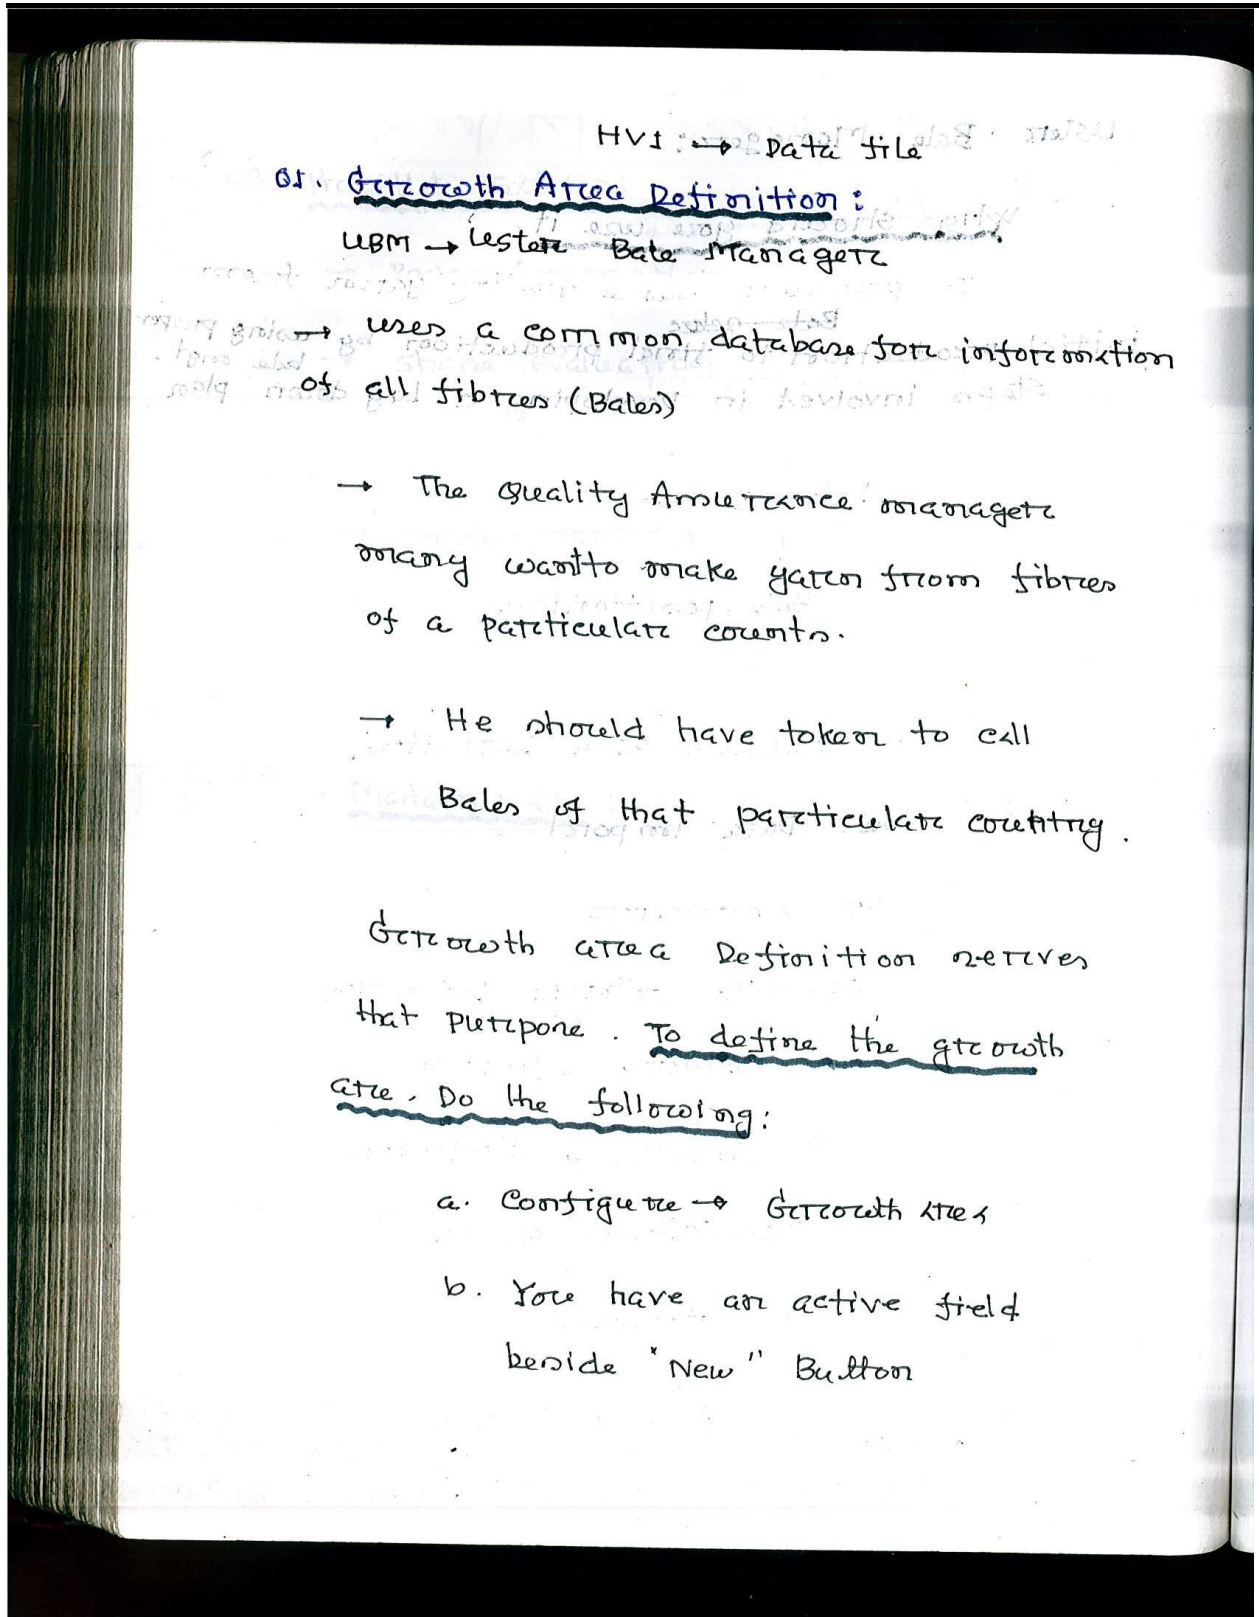 HVI → Data file
01. Growth Area Definition :
UBM → Uster Bale Manager
→ uses a common database for information
of all fibres (Bales)
→ The Quality Assurance manager
many want to make yarn from fibres
of a particular counts.
→ He should have token to call
Bales of that particular country.
Growth area Definition serves
that purpose. To define the growth
are. Do the following:
a. Configure → Growth area
b. You have an active field
beside "New" Button